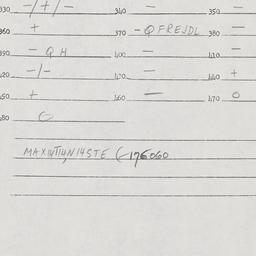 330 -/+/- 340 - 350 -
360 + 370 -QFREJDL 380 -
390 - QH 400 - 410 -
420 -/- 430 - 440 +
450 + 460 - 470 O
480 O
(-176060